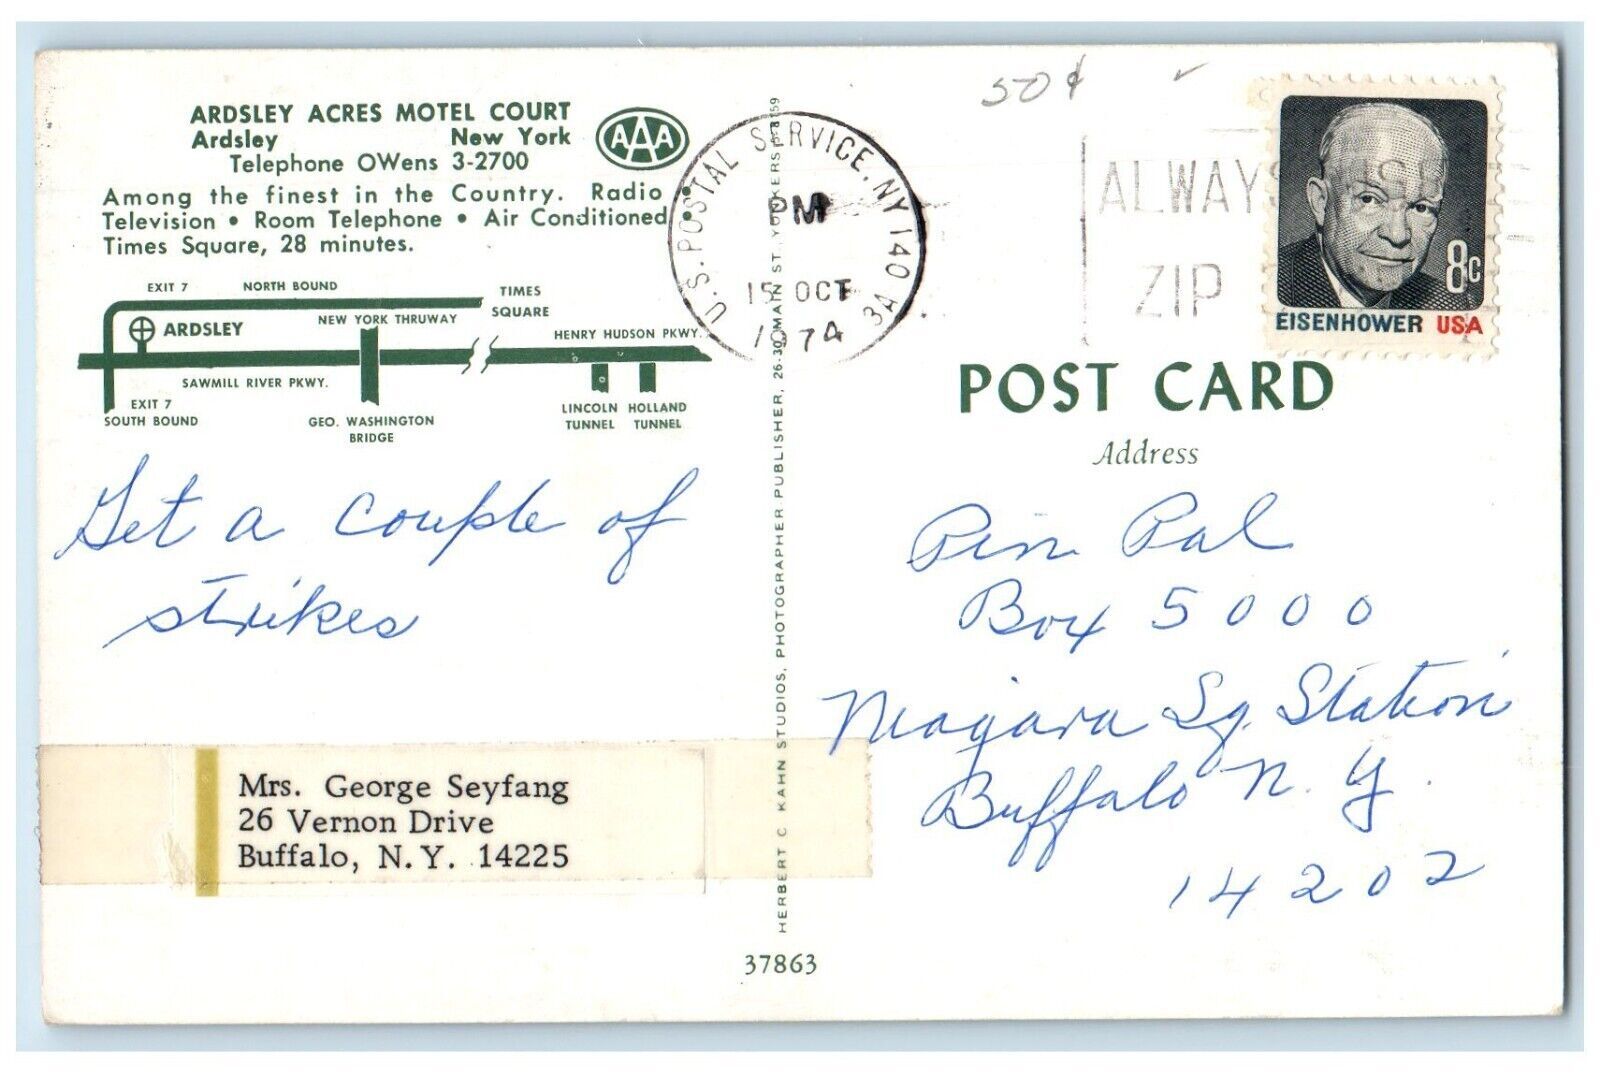 ARDSLEY ACRES MOTEL COURT
Ardsley New York
Telephone OWens 3-2700
AAA
Among the finest in the Country. Radio •
Television • Room Telephone • Air Conditioned
Times Square, 28 minutes.
EXIT 7 NORTH BOUND
TIMES
SQUARE
ARDSLEY
NEW YORK THRUWAY
HENRY HUDSON PKWY.
SAWMILL RIVER PKWY.
EXIT 7
SOUTH BOUND
GEO. WASHINGTON
BRIDGE
LINCOLN
TUNNEL
HOLLAND
TUNNEL
Get a couple of
strikes
Mrs. George Seyfang
26 Vernon Drive
Buffalo, N.Y. 14225
HERBERT C KAHN STUDIOS, PHOTOGRAPHER PUBLISHER, 26-30 MAIN ST. YONKERS
37863
U.S. POSTAL SERVICE, NY 140 3A
PM
15 OCT
1974
50¢
ALWAYS
ZIP
8c
EISENHOWER USA
POST CARD
Address
Pin Pal
Box 5000
Niagara Sq. Station
Buffalo N.Y.
14202